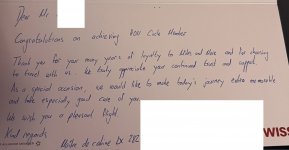 Dear Mr
Congratulations on achieving HON Circle Member
Thank you for your many years of loyalty to Miles and More and for choosing
to travel with us. We truly appreciate your continued trust and support.
As a special occasion, we would like to make today's journey extra memorable
and take especially good care of you.
We wish you a pleasant flight
Kind regards
Maître de cabine LX
WISS